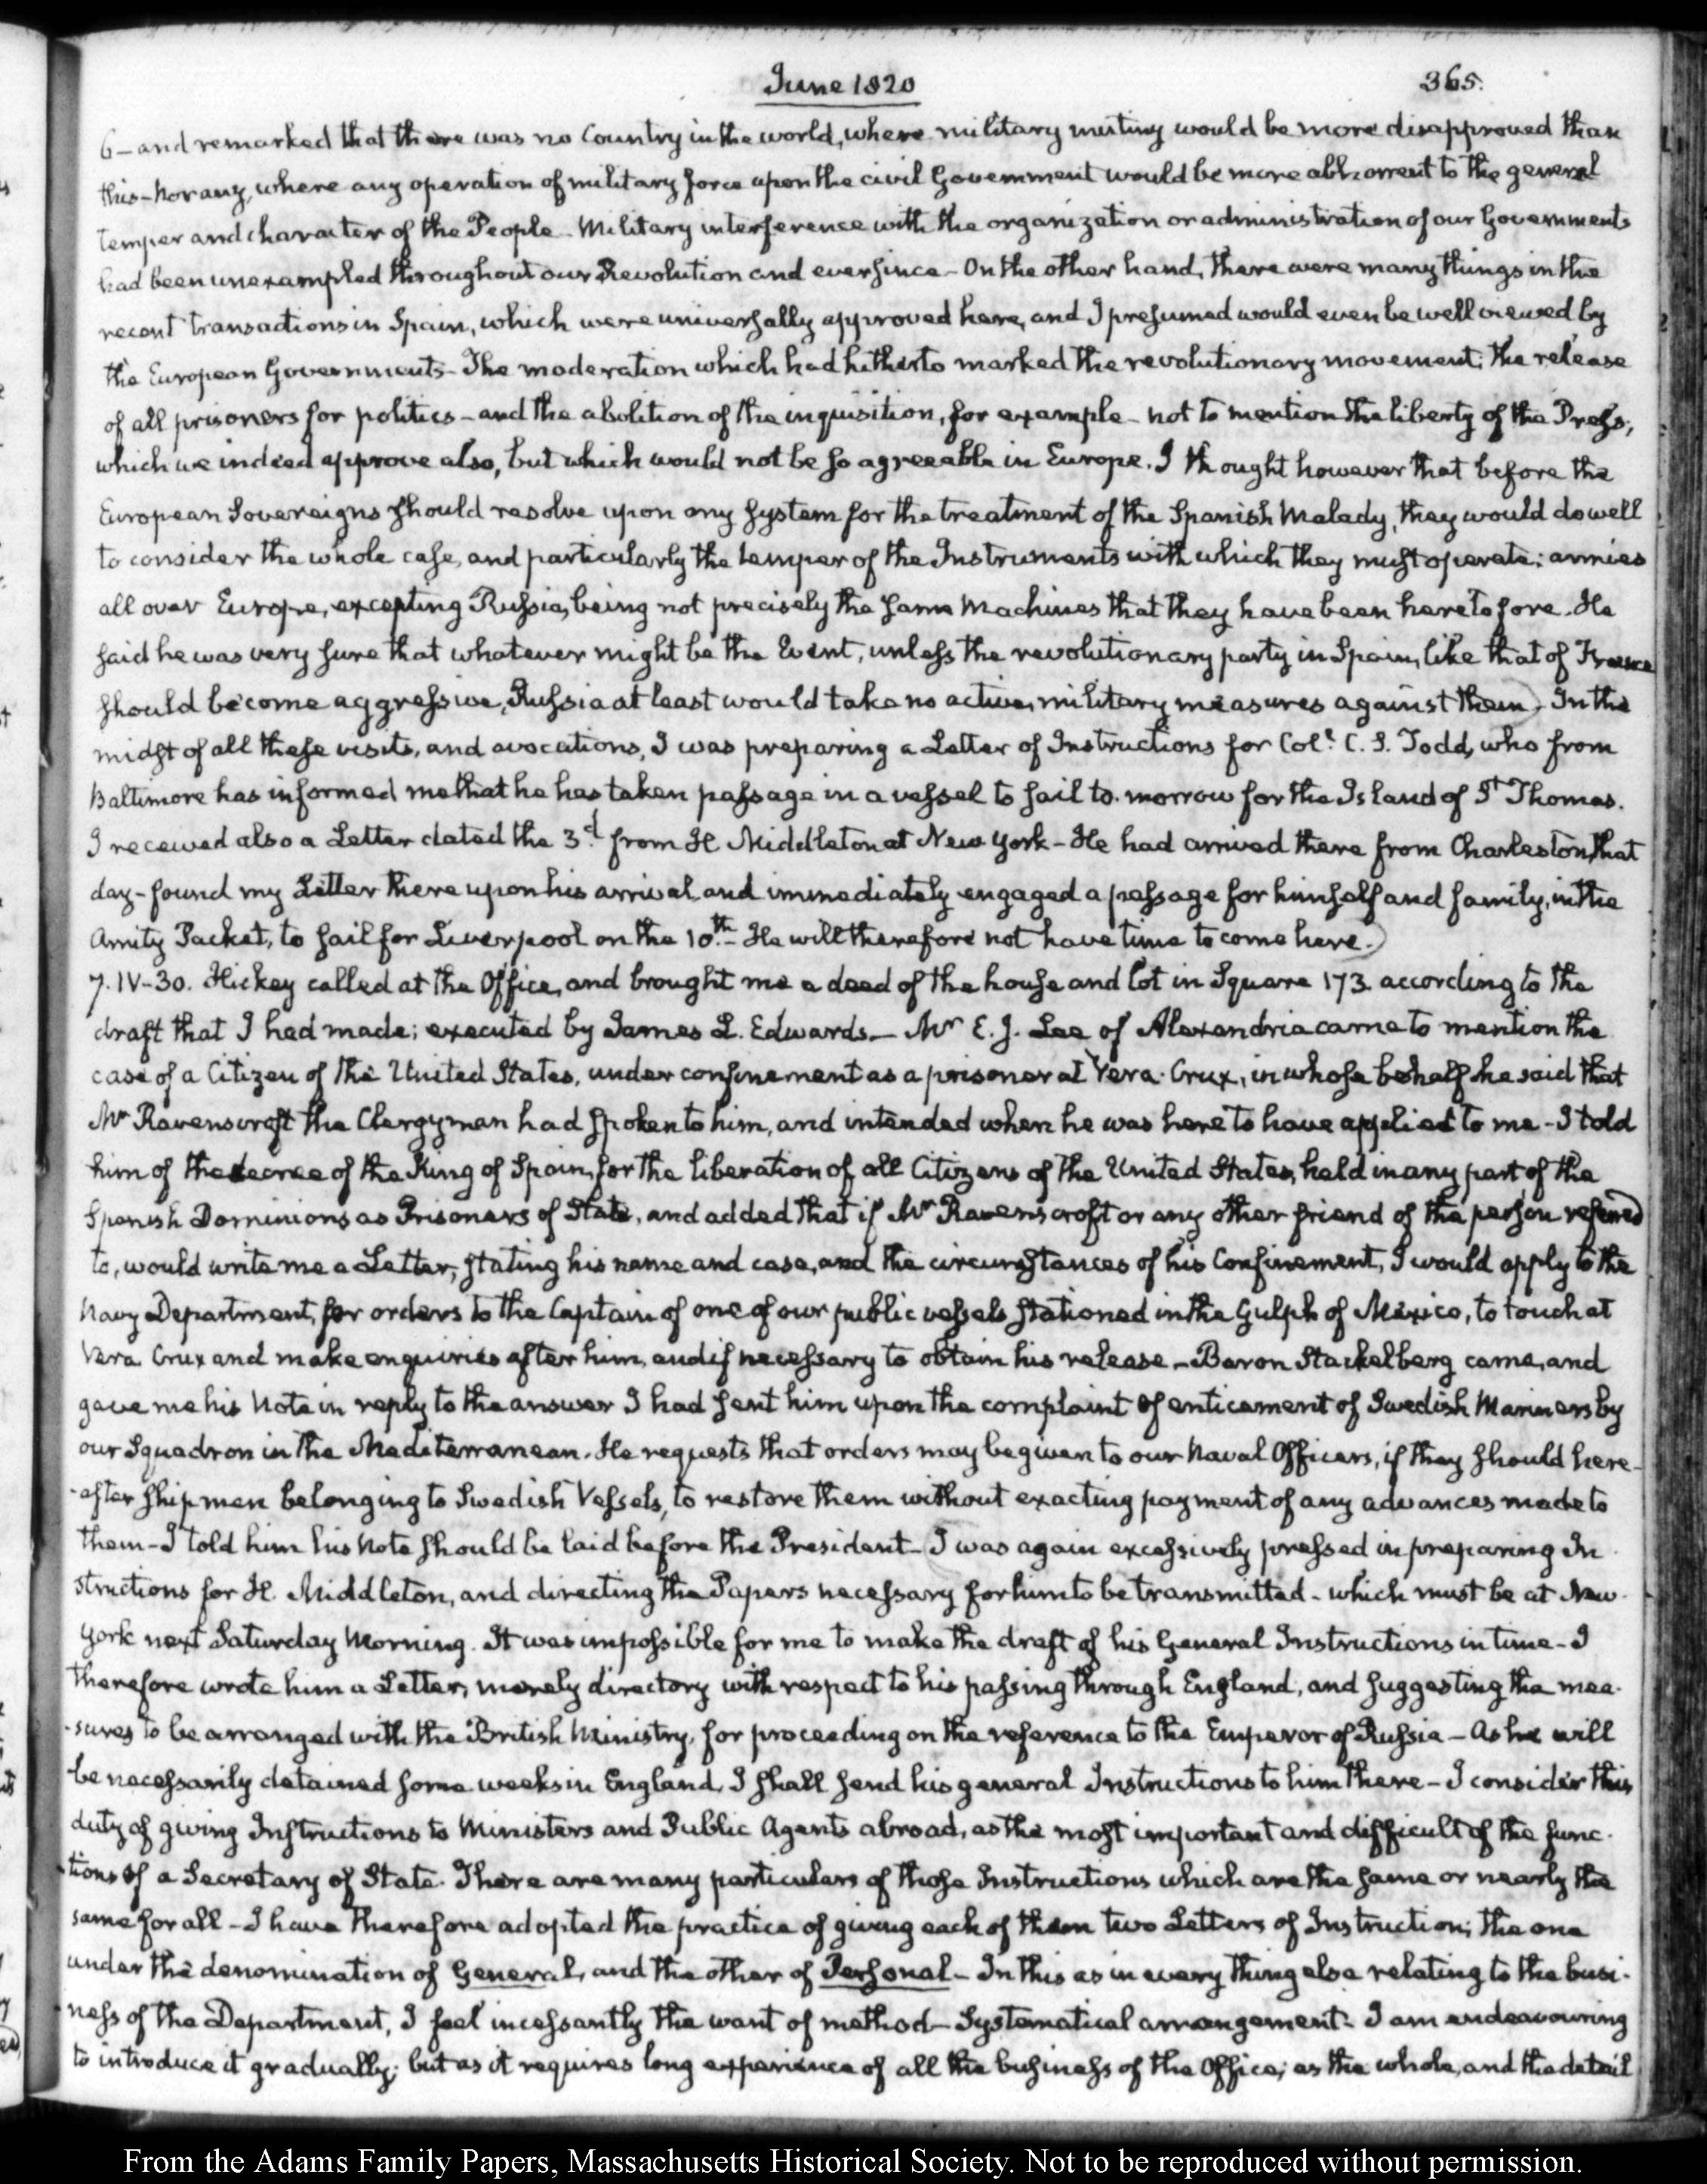 June 1820
365.
6 – and remarked that there was no Country in the world, where military mutiny would be more disapproved than
this – nor any, where any operation of military force upon the civil Government would be more abhorrent to the general
temper and character of the People – Military interference with the organization or administration of our Governments
had been unexampled throughout our Revolution and ever since – On the other hand, there were many things in the
recent transactions in Spain, which were universally approved here, and I presumed would even be well viewed by
the European Governments – The moderation which had hitherto marked the revolutionary movement; the release
of all prisoners for politics – and the abolition of the inquisition, for example – not to mention the liberty of the Press,
which we indeed approve also, but which would not be so agreeable in Europe. I thought however that before the
European Sovereigns should resolve upon any system for the treatment of the Spanish Malady, they would do well
to consider the whole case, and particularly the temper of the Instruments with which they must operate; armies
all over Europe, excepting Russia, being not precisely the same Machines that they have been heretofore – He
said he was very sure that whatever might be the Event, unless the revolutionary party in Spain, like that of France
should become aggressive, Russia at least would take no active, military measures against them) – In the
midst of all these visits, and avocations, I was preparing a Letter of Instructions for Col.l C. S. Todd, who from
Baltimore has informed me that he has taken passage in a vessel to sail to-morrow for the Island of St Thomas.
I received also a Letter dated the 3.d from H Middleton at New York – He had arrived there from Charleston, that
day – found my Letter there upon his arrival, and immediately engaged a passage for himself and family, in the
Amity Packet, to sail for Liverpool on the 10.th – He will therefore not have time to come here.)
7. IV–30. Hickey called at the Office, and brought me a deed of the house and lot in Square 173. according to the
draft that I had made; executed by James L. Edwards – Mr E. J. Lee of Alexandria came to mention the
case of a Citizen of the United States, under confinement as a prisoner at Vera-Crux, in whose behalf he said that
Mr Ravenscroft the Clergyman had spoken to him, and intended when he was here to have applied to me – I told
him of the decree of the King of Spain, for the liberation of all Citizens of the United States, held in any part of the
Spanish Dominions as Prisoners of State, and added that if Mr Ravenscroft or any other friend of the person referred
to, would write me a Letter, stating his name and case, and the circumstances of his Confinement, I would apply to the
Navy Department, for orders to the Captain of one of our public vessels stationed in the Gulph of Mexico, to touch at
Vera Crux and make enquiries after him, and if necessary to obtain his release – Baron Stackelberg came, and
gave me his Note in reply to the answer I had sent him upon the complaint of enticement of Swedish Mariners by
our Squadron in the Mediterranean. He requests that orders may be given to our Naval Officers, if they should here-
-after ship men belonging to Swedish Vessels, to restore them without exacting payment of any advances made to
them – I told him his Note should be laid before the President – (I was again excessively pressed in preparing In-
structions for H. Middleton, and directing the Papers necessary for him to be transmitted – which must be at New-
York next Saturday Morning. It was impossible for me to make the draft of his General Instructions in time – I
therefore wrote him a Letter, merely directory with respect to his passing through England, and suggesting the mea-
-sures to be arranged with the British Ministry, for proceeding on the reference to the Emperor of Russia – As he will
be necessarily detained some weeks in England, I shall send his general Instructions to him there – I consider this
duty of giving Instructions to Ministers and Public Agents abroad, as the most important and difficult of the func-
-tions of a Secretary of State. There are many particulars of those Instructions which are the same or nearly the
same for all – I have therefore adopted the practice of giving each of them two Letters of Instruction; the one
under the denomination of General, and the other of Personal – In this as in every thing else relating to the busi-
ness of the Department, I feel incessantly the want of method – Systematical arrangement – I am endeavouring
to introduce it gradually; but as it requires long experience of all the business of the Office; as the whole, and the detail
From the Adams Family Papers, Massachusetts Historical Society. Not to be reproduced without permission.